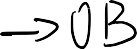 →OB